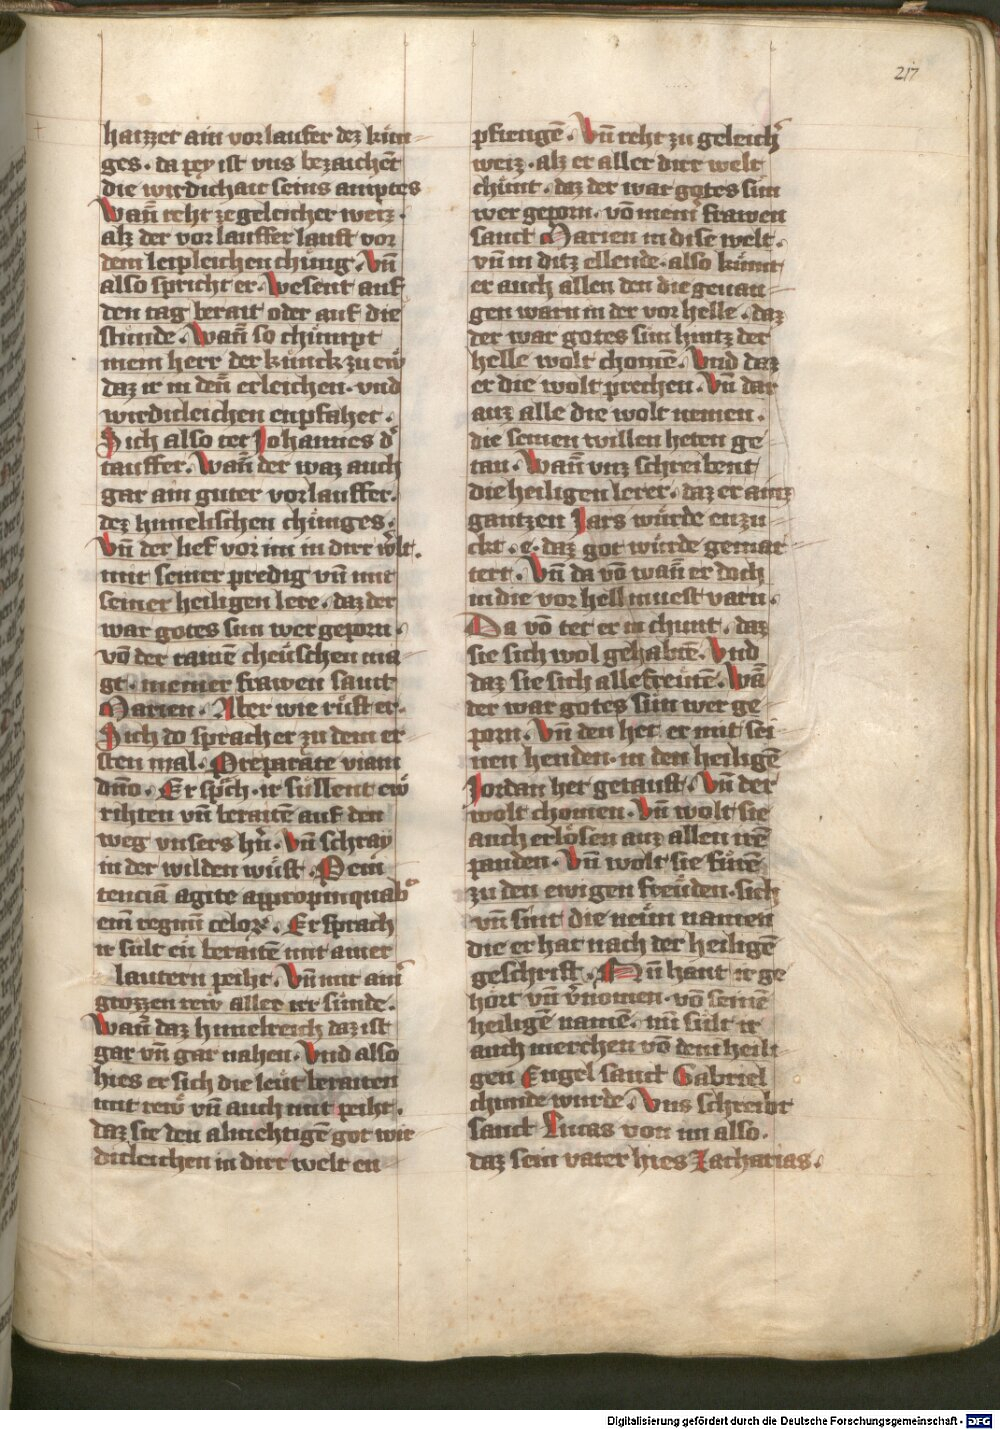 217
haizzet ain vorlaufer dez kün
ges. da pey ist vns bezaichēt
die wirdichait seins amptes
Wañ reht ze geleicher weiz.
alz der vorlauffer lauft vor
dem leipleichen chüng. Vñ
also spricht er. Wesent auf
den tag berait oder auf die
stunde. Wañ so chümpt
mein herr der künck zu ew
daz ir in deñ erleichen. vnd
wirdicleichen enpfahet.
Sich also tet Johannes d
tauffer. Wañ der waz auch
gar ain guter vorlauffer.
dez himelischen chünges.
Vñ der lief vor im in dirr welt.
mit seiner predig vñ mit
seiner heiligen lere. daz der
war gotes sun wer geporn.
vō der rainē cheüschen ma
get. meiner frawen sant
Marien. Aber wie rüft er.
Sich do sprach er zu dem er
sten mal. Preparate viam
dn̄o. Er spͨch. ir süllent ew
rihten vñ beraitē auf den
weg vnsers hñ. Vñ schray
in der wilden wüst. Peni
tenciā agite appropinquab
em̄ regnū celoꝝ. Er sprach
ir sült eu beraitē mit ainer
lautern peiht. Vñ mit ain
grozzen rew aller irr sünde.
Wañ daz himelreich daz ist
gar vñ gar nahen. Vnd also
hies er sich die leüt beraiten
mit rew vñ auch mit peiht.
daz sie den almehtigē got wir
dicleichen in dirr welt en
pfiengē. Vñ reht zu geleich
weiz. alz er aller dirr welt
chünt. daz der war gotes sun
wer geporn. vō mein frawen
sanct Marien in dise welt.
vñ in ditz ellende. also künt
er auch allen den die geuan
gen warn in der vorhelle. daz
der war gotes sun hintz der
helle wolt chomē. Vnd daz
er die wolt prechen. Vñ dar
auz alle die wolt nemen.
die seinen willen heten ge
tan. Wañ vnz schreibent
die heiligen lerer. daz er ainz
gantzen Jars würde enzu
ckt. e. daz got würde gemar
tert. Vñ da vō wañ er doch
in die vorhell muest varn.
Da vō tet er in chunt. daz
sie sich wol gehabtē. Vnd
daz sie sich alle freütē. Wā
der war gotes sün wer ge
porn. Vñ den het er mit sei
nen henden. in den heiligē
Jordan her getauft. Vñ der
wolt chomen. Vñ wolt sie
auch erlösen auz allen irē
panden. Vñ wolt sie fürē
zu den ewigen freüden. sich
vñ sint die neün namen
die er hat nach der heiligē
geschrift. Nu hant ir ge
hört vñ v̄nomen. vō seinē
heiligē namē. nu sült ir
auch merchen vō dem heili
gen Engel sanct Gabriel
chunde wurde. Vns schreibt
sanct Lucas von im also.
daz sein vater hies Zacharias.
Digitalisierung gefördert durch die Deutsche Forschungsgemeinschaft - DFG